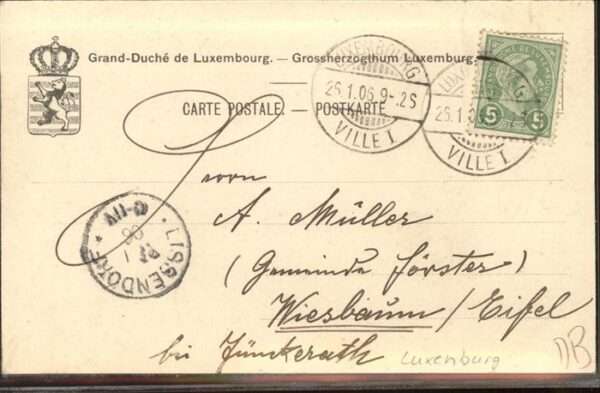 Grand-Duché de Luxembourg. — Grossherzogthum Luxemburg.
CARTE POSTALE. — POSTKARTE
LUXEMBOURG
25.1.06 9-.2S
VILLE I
25.1
VILLE I
5 5
Herrn
A. Müller
(Gemeinde Förster)
Wiesbaum/Eifel
bei Jünkerath
LISSENDORF
Luxemburg